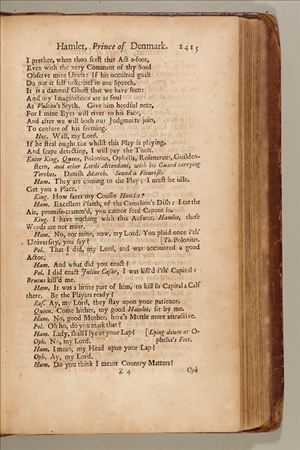 Hamlet, Prince of Denmark. 2415
I prethee, when thou seest that Act a-foot,
Even with the very Comment of thy Soul
Observe mine Uncle: If his occulted guilt
Do not it self unkennel in one Speech,
It is a damned Ghost that we have seen:
And my Imaginations are as foul
As Vulcan's Styth. Give him heedful note,
For I mine Eyes will rivet to his Face,
And after we will both our Judgments join,
To censure of his seeming.
Hor. Well, my Lord.
If he steal ought the whilst this Play is playing,
And scape detecting, I will pay the Theft.
Enter King, Queen, Polonius, Ophelia, Rosencraus, Guilden-
stern, and other Lords Attendant, with his Guard carrying
Torches. Danish March. Sound a Flourish.
Ham. They are coming to the Play; I must be idle.
Get you a Place.
King. How fares my Cousin Hamlet?
Ham. Excellent i'faith, of the Camelion's Dish: I eat the
Air, promise-cramm'd, you cannot feed Capons so.
King. I have nothing with this Answer Hamlet, these
Words are not mine.
Ham. No, nor mine, now, my Lord. You plaid once i'th'
University, you say? To Polonius.
Pol. That I did, my Lord, and was accounted a good
Actor.
Ham. And what did you enact?
Pol. I did enact Julius Cæsar, I was kill'd i'th' Capitol:
Brutus kill'd me.
Ham. It was a brute part of him, to kill so Capital a Calf
there. Be the Players ready?
Ros. Ay, my Lord, they stay upon your patience.
Queen. Come hither, my good Hamlet, sit by me.
Ham. No, good Mother, here's Mettle more attractive.
Pol. Oh ho, do you mark that?
Ham. Lady, shall I lye in your Lap? [Lying down at O-
Oph. No, my Lord. phelia's Feet.
Ham. I mean, my Head upon your Lap?
Oph. Ay, my Lord.
Ham. Do you think I meant Country Matters?
Z 4 Oph